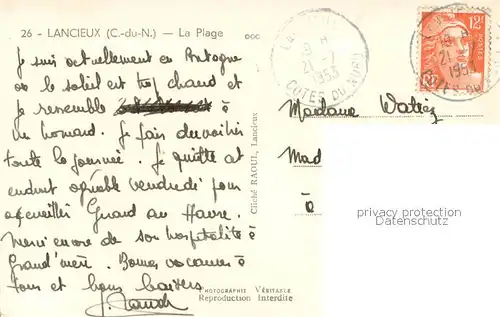 26 - LANCIEUX (C.-du-N.) — La Plage
Je suis actuellement en Bretagne
ou le soleil est trop chaud et
je ressemble à
un homard. Je fais du voilier
toute la journée. Je quitte cet
endroit agréable vendredi pour
accueillir Gérard au Havre.
Merci encore de son hospitalité à
Grand'mère. Bonnes vacances à
tous et bons baisers
LANCIEUX
19 H
21-7
1953
COTES DU NORD
12F
POSTES
RF
Madame
Mad
à
Cliché RAOUL, Lancieux
PHOTOGRAPHIE VÉRITABLE
Reproduction Interdite
privacy protection
Datenschutz